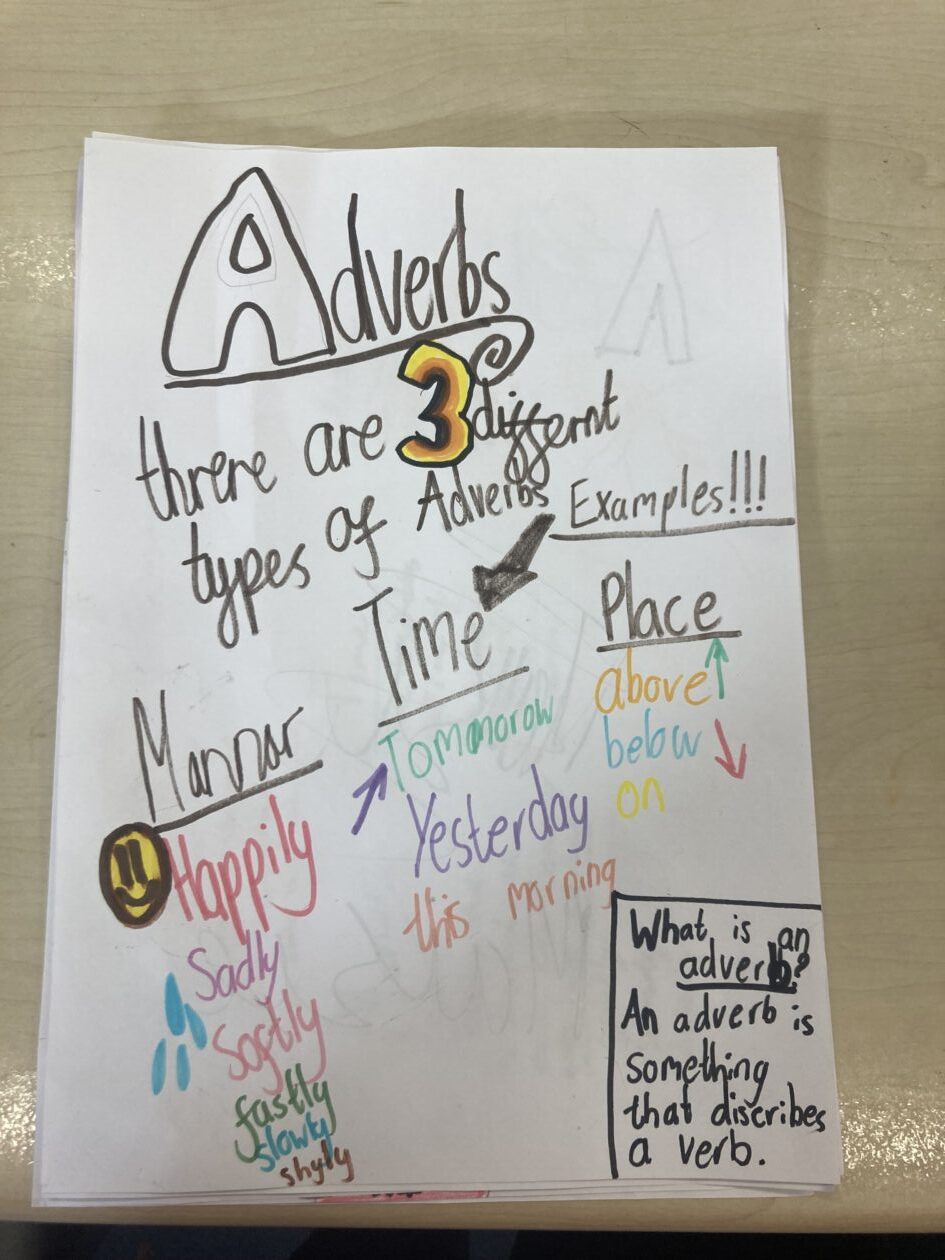 Adverbs
threre are 3 differnt
types of Adverbs
Examples!!!
Mannar
Happily
Sadly
Softly
fastly
slowly
shyly
Time
Tomanorow
Yesterday
this morning
Place
above
below
on
What is an
adverb?
An adverb is
something
that discribes
a verb.